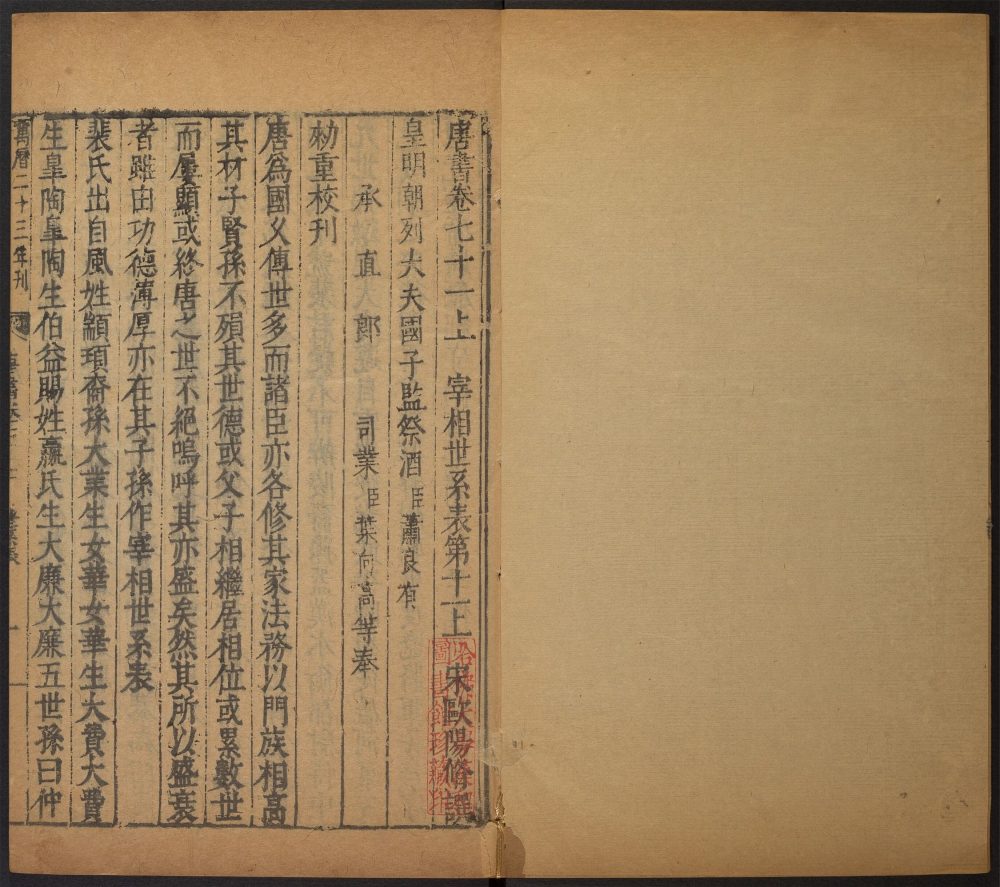 唐書卷七十一上 宰相世系表第十一上 宋歐陽脩撰
皇明朝列大夫國子監祭酒臣蕭良有
承直郎司業臣葉向高等奉
勑重校刊
唐爲國久傳世多而諸臣亦各修其家法務以門族相高
其材子賢孫不殞其世德或父子相繼居相位或累數世
而屢顯或終唐之世不絕嗚呼其亦盛矣然其所以盛衰
者雖由功德薄厚亦在其子孫作宰相世系表
裴氏出自風姓顓頊裔孫大業生女華女華生大費大費
生皋陶皋陶生伯益賜姓嬴氏生大廉大廉五世孫曰仲
萬曆二十三年刊
圖書館珍藏印